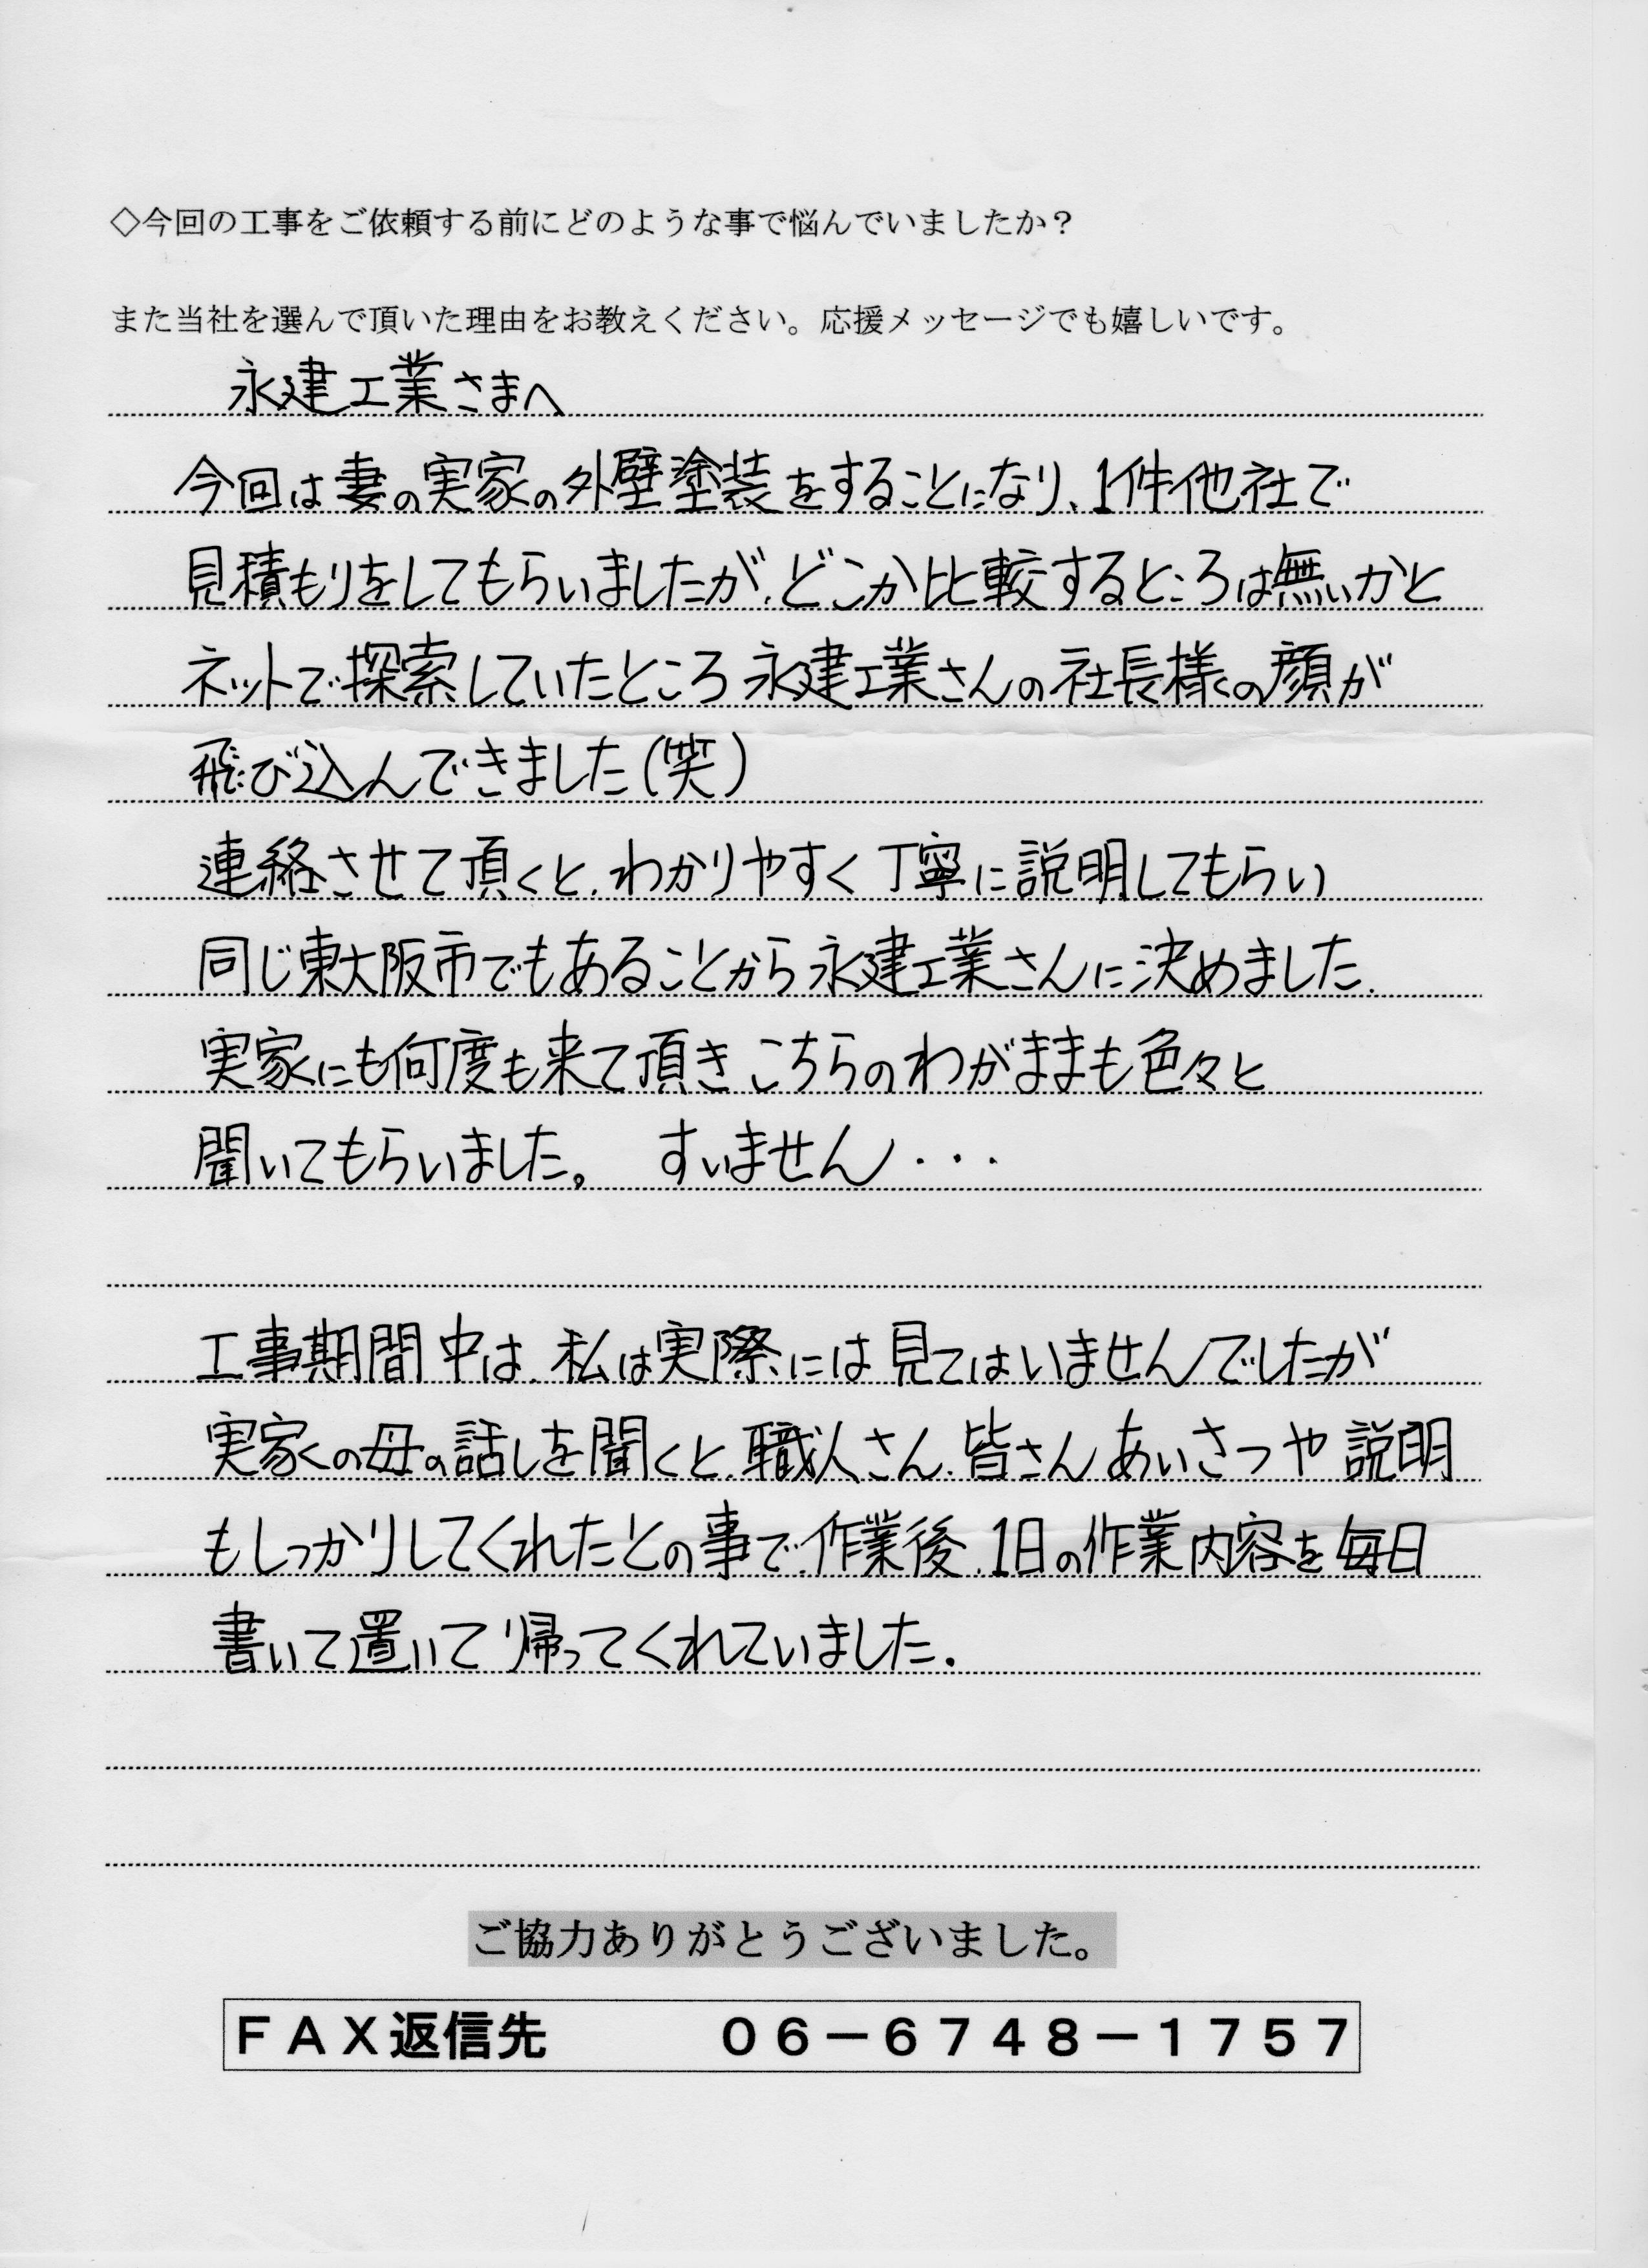 ◇今回の工事をご依頼する前にどのような事で悩んでいましたか？
また当社を選んで頂いた理由をお教えください。応援メッセージでも嬉しいです。
永建工業さまへ
今回は妻の実家の外壁塗装をすることになり、1件他社で
見積もりをしてもらいましたが、どこか比較するところは無いかと
ネットで探索していたところ永建工業さんの社長様の顔が
飛び込んできました(笑)
連絡させて頂くと、わかりやすく丁寧に説明してもらい
同じ東大阪市でもあることから永建工業さんに決めました.
実家にも何度も来て頂きこちらのわがままも色々と
聞いてもらいました。 すいません・・・
工事期間中は、私は実際には見てはいませんでしたが
実家の母の話しを聞くと、職人さん、皆さんあいさつや説明
もしっかりしてくれたとの事で、作業後、1日の作業内容を毎日
書いて置いて帰ってくれていました.
ご協力ありがとうございました。
ＦＡＸ返信先 ０６－６７４８－１７５７